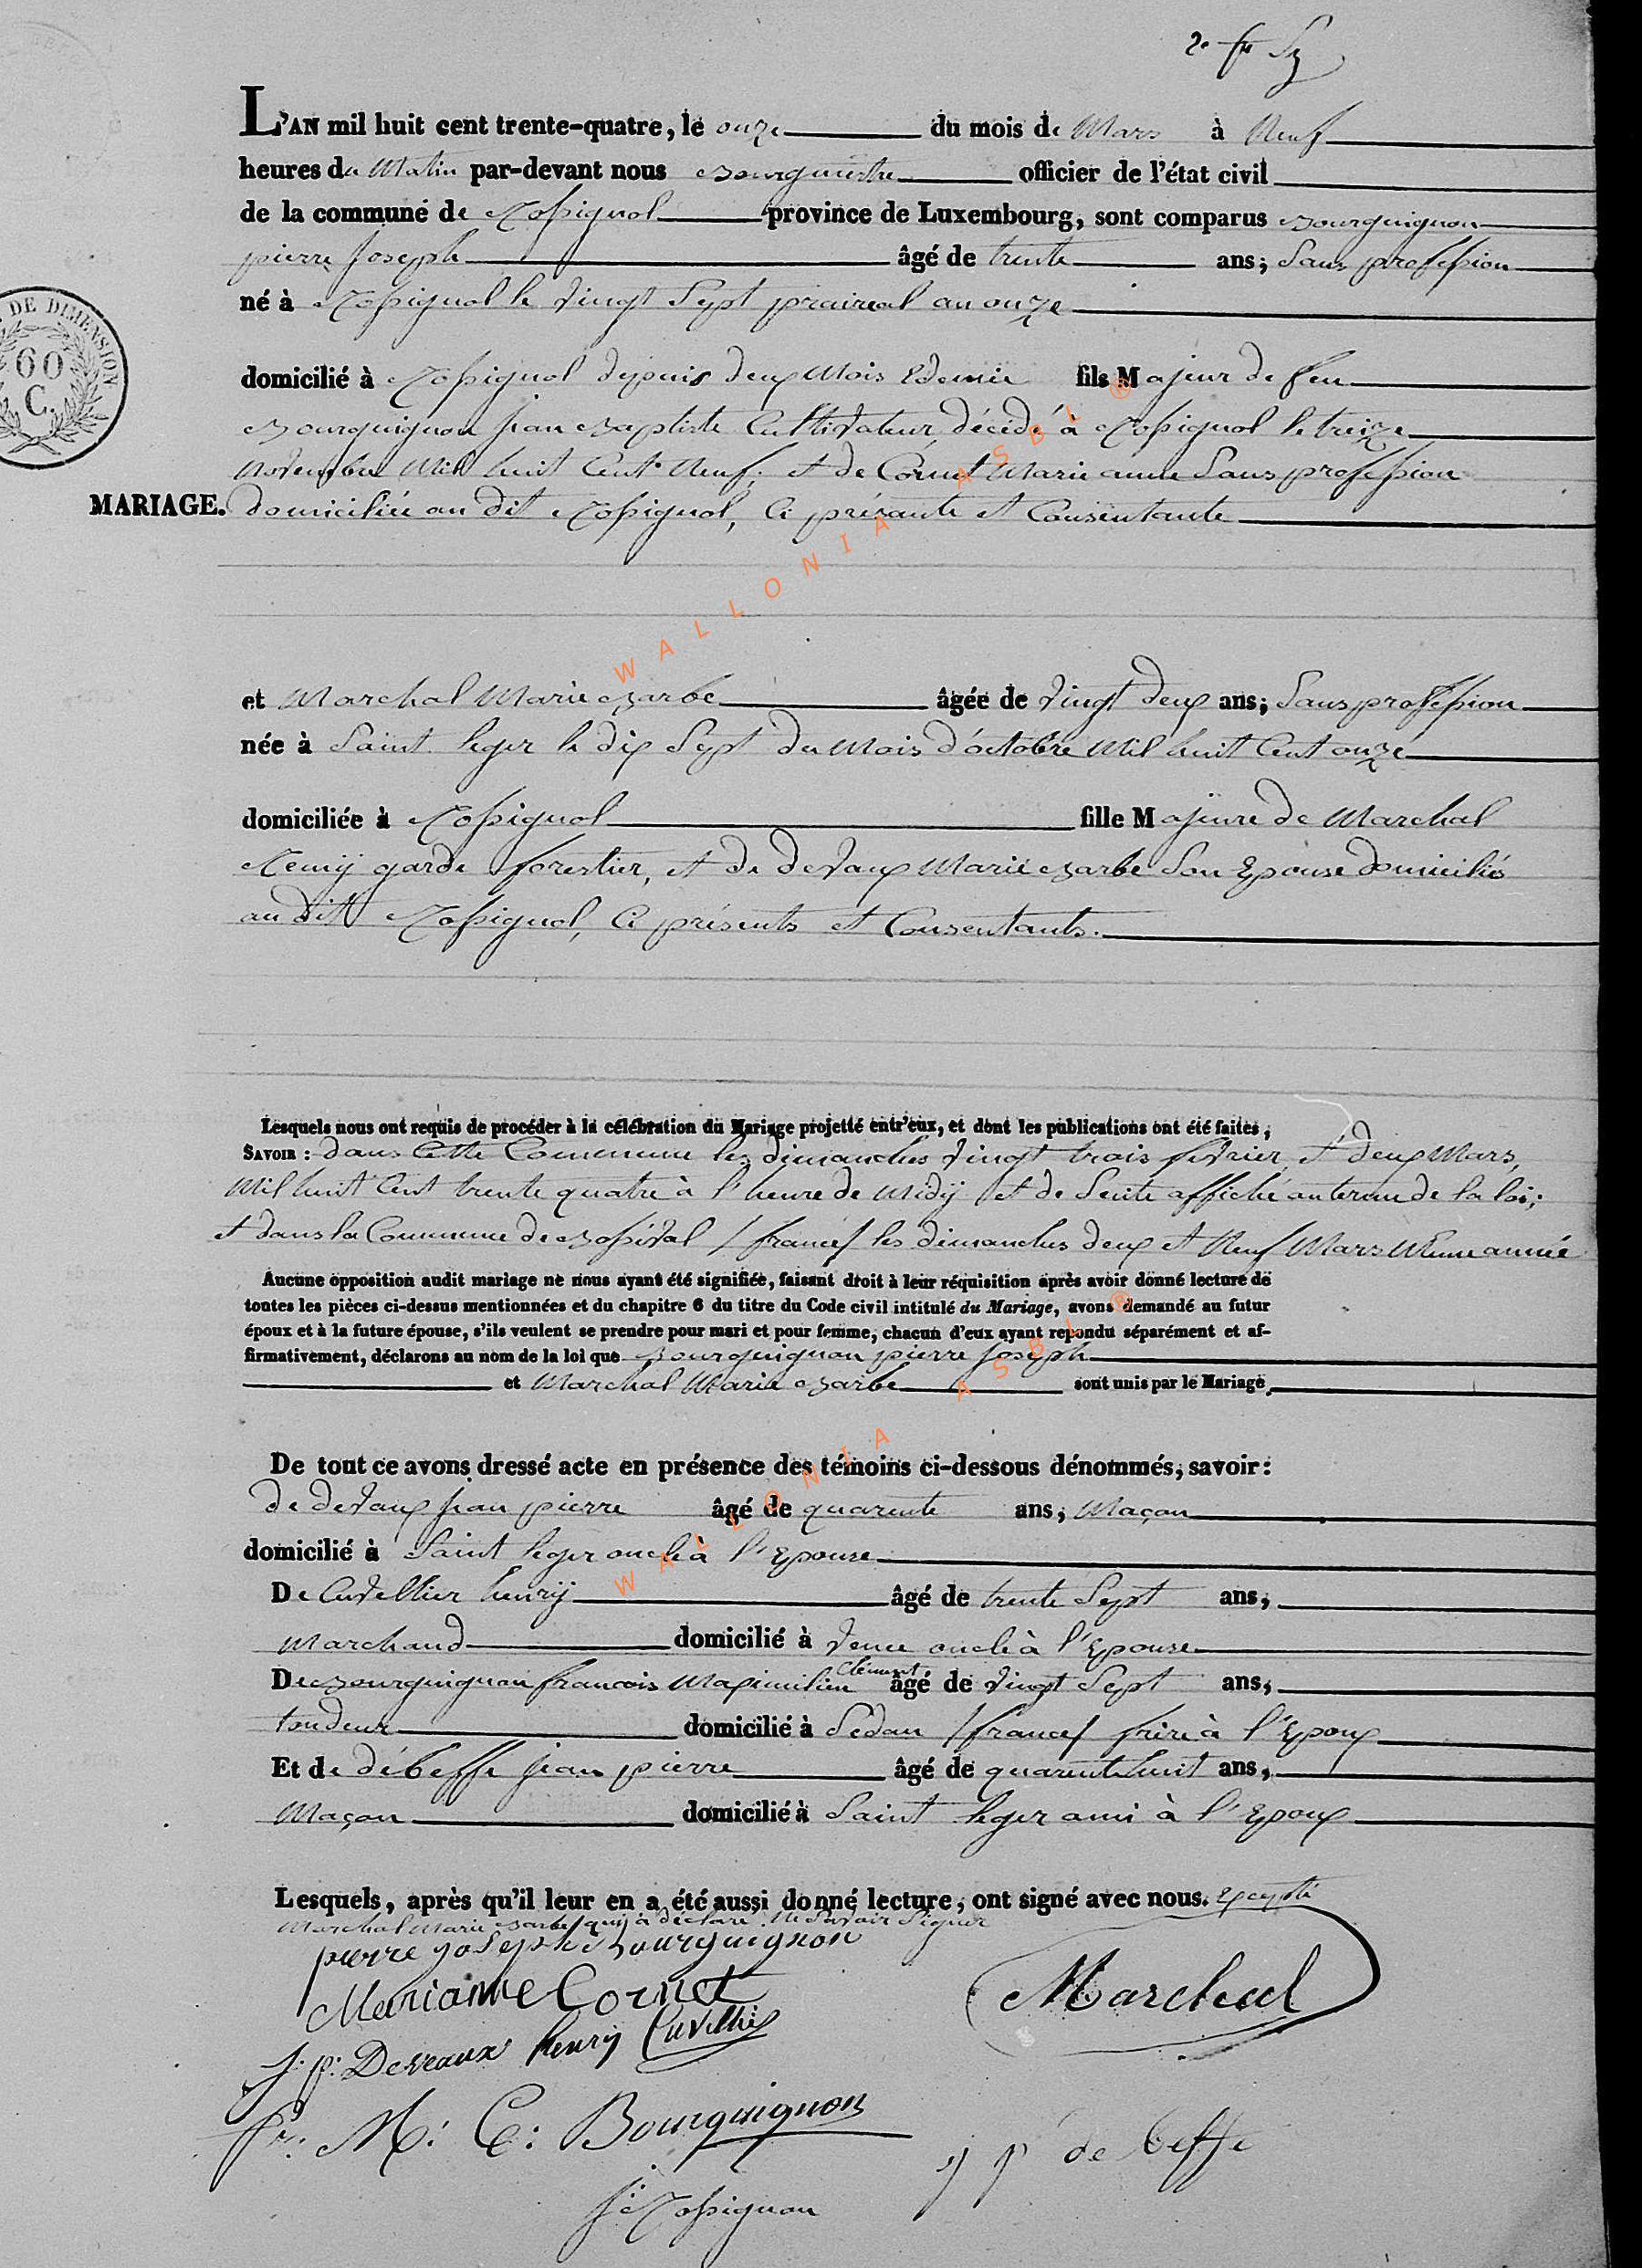 L'AN mil huit cent trente-quatre, le onze du mois de Mars à Neuf
heures du Matin par-devant nous Bourgmestre officier de l'état civil
de la commune de Rossignol province de Luxembourg, sont comparus Bourguignon
pierre Joseph âgé de trente ans; Sans profession
né à Rossignol le vingt Sept prairéal an onze
DE DIMENSION
60
C.
domicilié à Rossignol depuis deux Mois & demie fils Majeur de feu
Bourguignon jean Baptiste Cultivateur, décédé à Rossignol le treize
Novembre Mil huit Cent Neuf; et de Cornet Marie anne Sans profession
MARIAGE.
domiciliée au dit Rossignol, Ci présante et Consentante
et Marchal Marie Barbe âgée de vingt deux ans; Sans profession
née à Saint leger le dix Sept du Mois d'octobre Mil huit Cent onze
domiciliée à Rossignol fille Majeure de Marchal
Remij garde forestier, et de devaux Marie Barbe Son Epouse domiciliés
au dit Rossignol, Ci présents et Consentants.
Lesquels nous ont requis de procéder à la célébration du Mariage projetté entr'eux, et dont les publications ont été faites,
SAVOIR : dans Cette Commune les dimanches vingt trois fevrier, et deux Mars,
Mil huit Cent trente quatre à l'heure de Midij et de Suite affiché au terme de la loi;
et dans la Commune de /france/ les dimanches deux et Neuf Mars Même année
Aucune opposition audit mariage ne nous ayant été signifiée, faisant droit à leur réquisition après avoir donné lecture de
toutes les pièces ci-dessus mentionnées et du chapitre 6 du titre du Code civil intitulé du Mariage, avons demandé au futur
époux et à la future épouse, s'ils veulent se prendre pour mari et pour femme, chacun d'eux ayant repondu séparément et af-
firmativement, déclarons au nom de la loi que Bourguignon pierre Joseph
et Marchal Marie Barbe sont unis par le Mariage.
De tout ce avons dressé acte en présence des témoins ci-dessous dénommés, savoir:
de devaux jean pierre âgé de quarente ans; Maçon
domicilié à Saint leger oncle à l'Epouse
De Cuvellier henrij âgé de trente Sept ans,
Marchand domicilié à oncle à l'Epouse
De Bourguignon francois Maximilien Clément âgé de vingt Sept ans,
tondeur domicilié à Sédan /france/ frère à l'Epoux
Et de débeffe jean pierre âgé de quarente huit ans,
Maçon domicilié à Saint leger ami à l'Epoux
Lesquels, après qu'il leur en a été aussi donné lecture, ont signé avec nous. Excepté
Marchal Marie Barbe quij à déclaré Ne Savoir Signer
pierre joseph Bourguignon
Marianne Cornet
Marchal
J. p: Deveaux henrij Cuvellier
fr: M: C: Bourguignon
j p de beffe
WALLONIA ASBL ®
WALLONIA ASBL ®